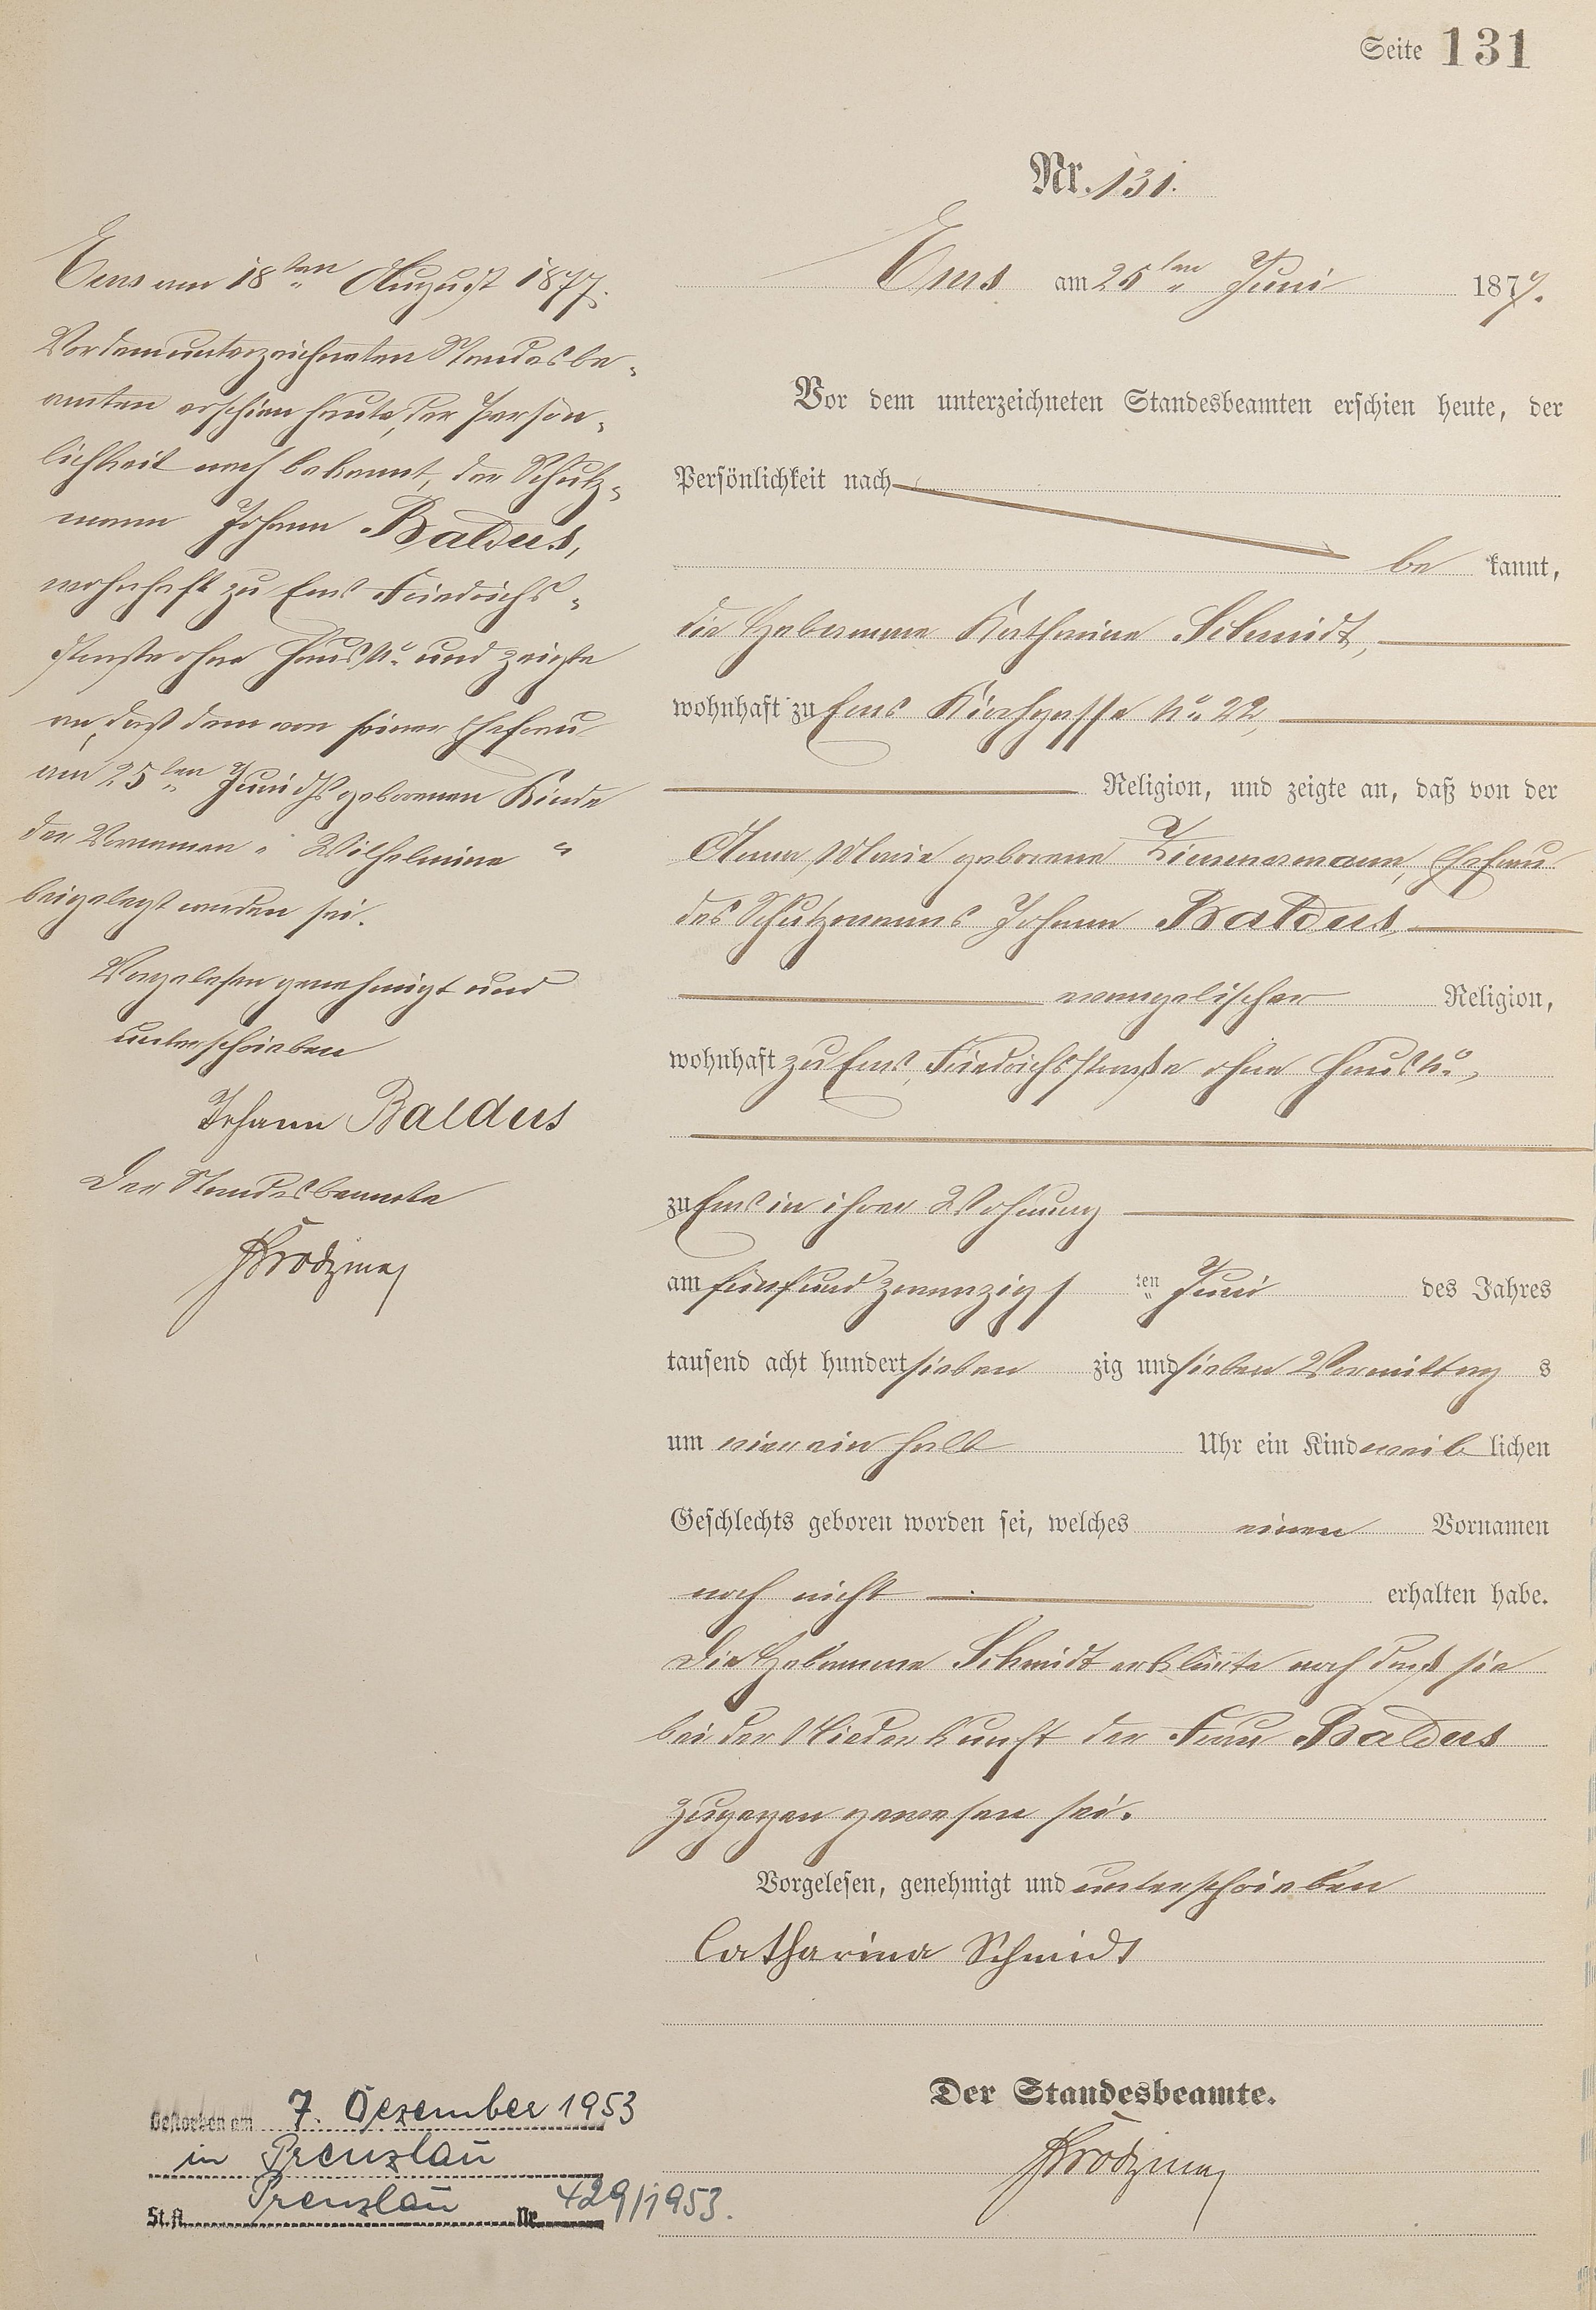 Seite 131
Nr. 131.
Ems am 25ten Juni 1877.
Vor dem unterzeichneten Standesbeamten erschien heute, der
Persönlichkeit nach
be kannt,
die Hebamme Katharine Schmidt,
wohnhaft zu Ems Kirchgasse No. 22,
Religion, und zeigte an, daß von der
Anna Marie geborene Zimmermann, Ehefrau
des Schutzmanns Johann Baldus,
evangelischer Religion,
wohnhaft zu Ems, Friedrichsstraße ohne Haus No.,
zu Ems in ihrer Wohnung
am fünfundzwanzigs ten Juni des Jahres
tausend acht hundert sieben zig und sieben Vormittag s
um vier ein halb Uhr ein Kind weib lichen
Geschlechts geboren worden sei, welches einen Vornamen
noch nicht erhalten habe.
Die Hebamme Schmidt erklärte noch daß sie
bei der Niederkunft der Frau Baldus
zugegen gewesen sei.
Vorgelesen, genehmigt und unterschrieben
Catharina Schmidt
Der Standesbeamte.
Ems am 18ten August 1877.
Vor dem unterzeichneten Standesbe-
amten erschien heute, der Persön-
lichkeit nach bekannt, der Schutz-
mann Johann Baldus,
wohnhaft zu Ems Friedrichs-
straße ohne Haus No. und zeigte
an, daß dem von seiner Ehefrau
am 25ten Juni ds geborenen Kinde
der Vornamen " Wilhelmine "
beigelegt worden sei.
Vorgelesen genehmigt und
unterschrieben
Johann Baldus
Der Standesbeamte
Gestorben am 7. Dezember 1953
in Prenzlau
St. A. Prenzlau Nr. 429/1953.